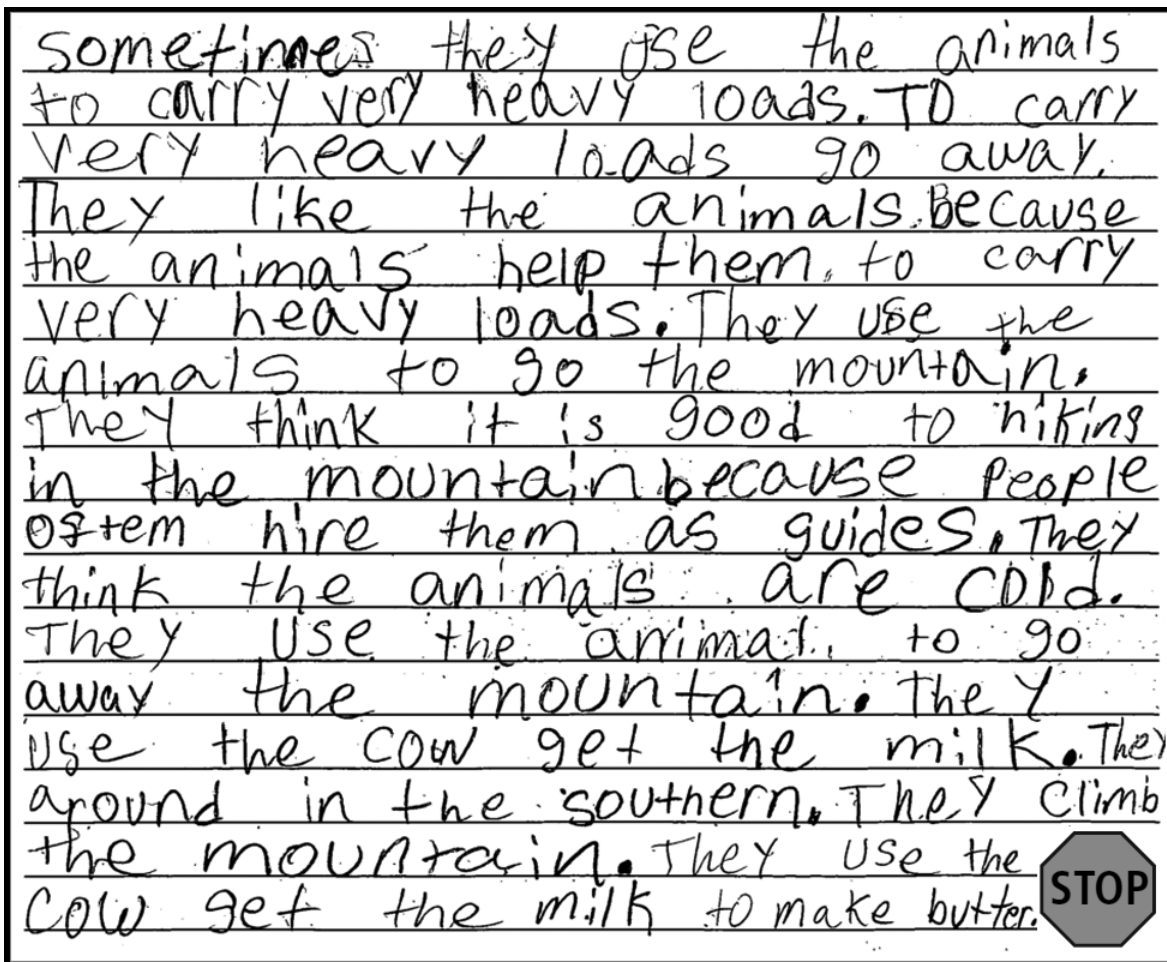 sometimes they use the animals
to carry very heavy loads. To carry
very heavy loads go away.
They like the animals. Because
the animals help them to carry
very heavy loads. They use the
animals to go the mountain.
They think it is good to hiking
in the mountain because people
oftem hire them as guides. They
think the animals are cold.
They use the animal to go
away the mountain. They
use the cow get the milk. They
around in the southern. They climb
the mountain. They use the
cow get the milk to make butter.
STOP